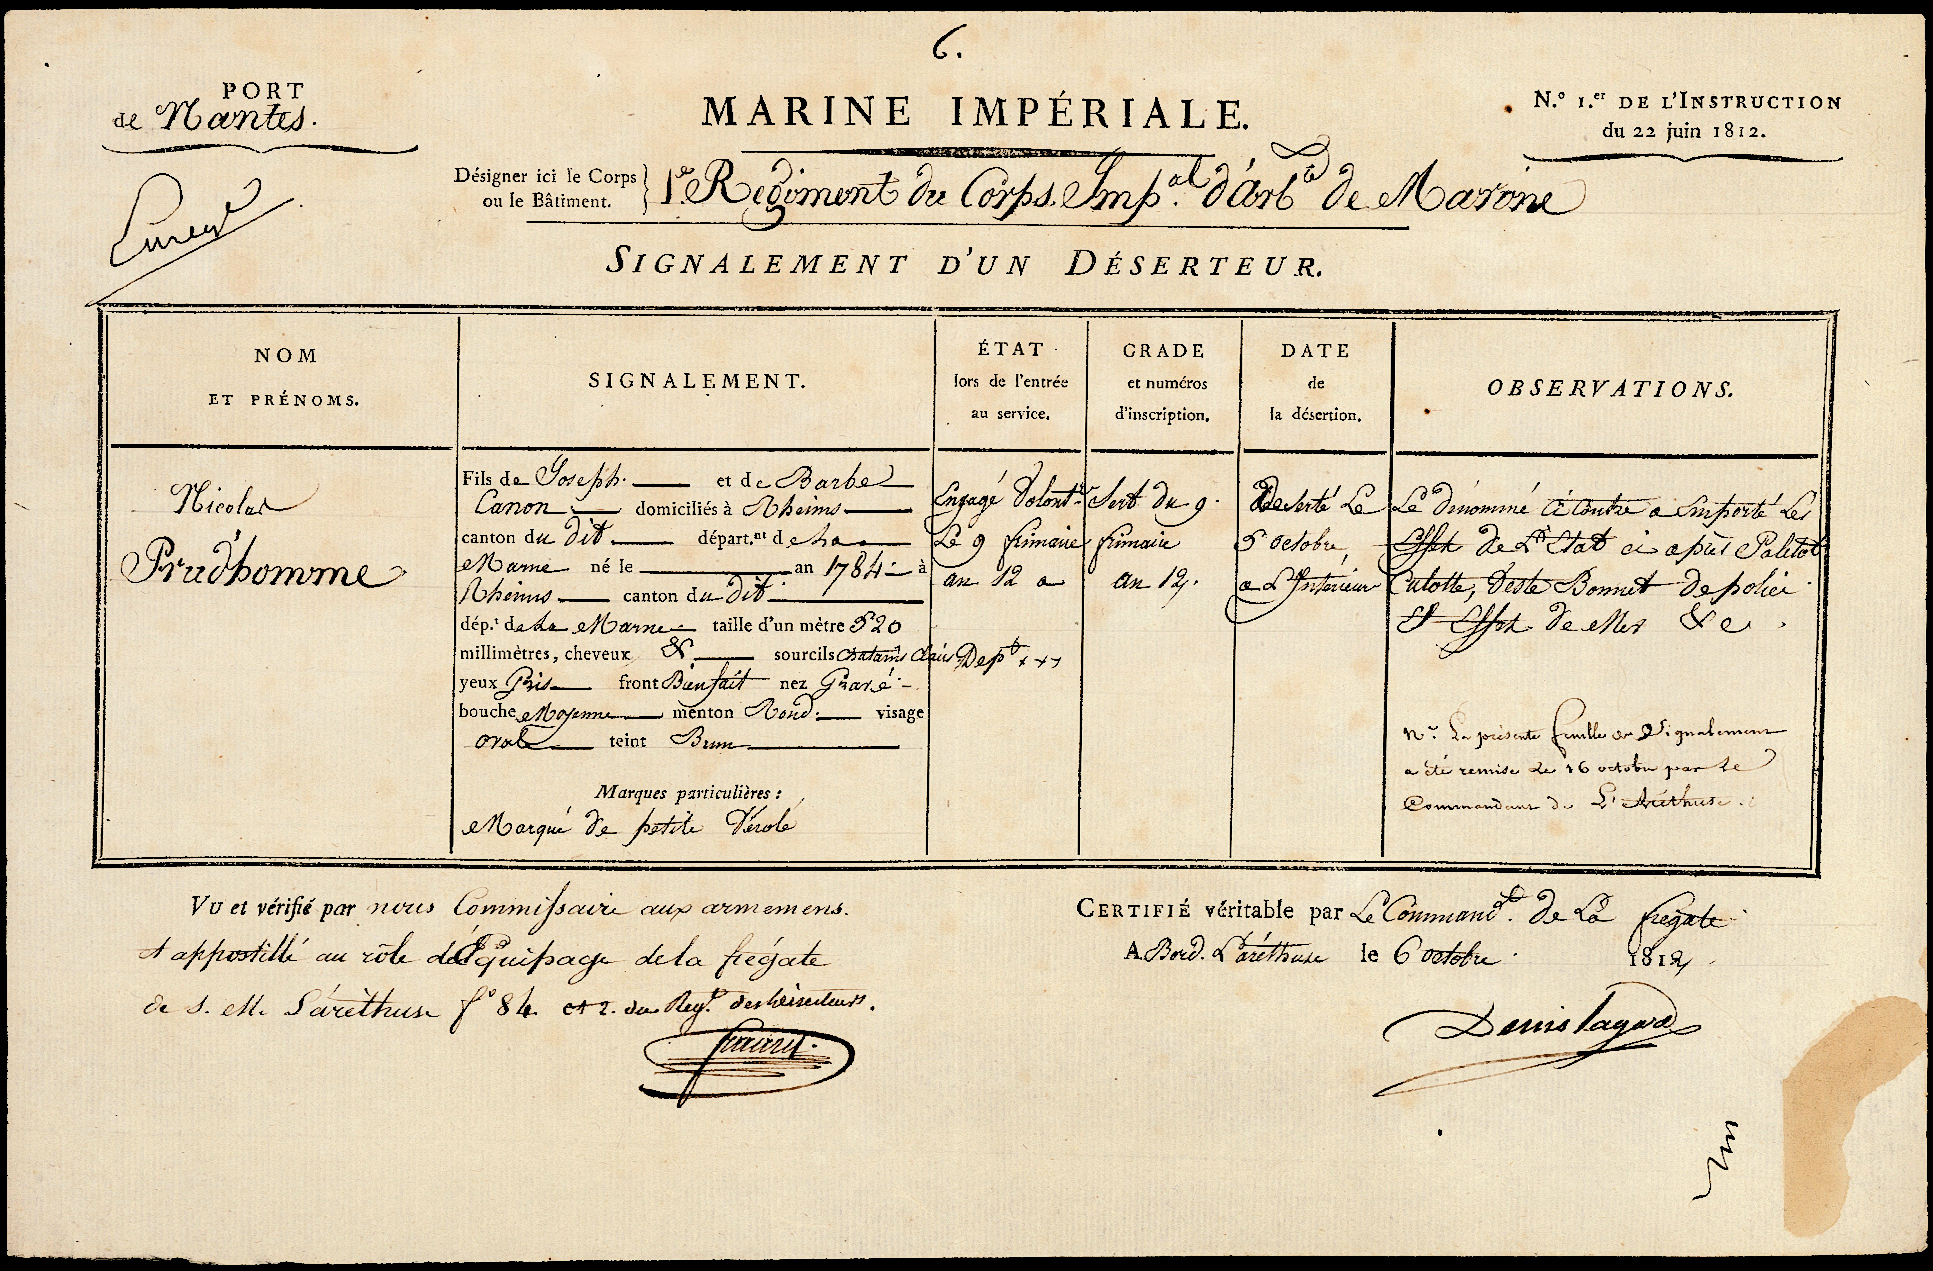 6.
PORT
de Nantes.
MARINE IMPÉRIALE.
N.º 1.er DE L'INSTRUCTION
du 22 juin 1812.
Désigner ici le Corps
ou le Bâtiment.
1.e Regiment du Corps Imp.al d'Art.ie de Marine
SIGNALEMENT D'UN DÉSERTEUR.
NOM
ET PRÉNOMS.
SIGNALEMENT.
ÉTAT
lors de l'entrée
au service.
GRADE
et numéros
d'inscription.
DATE
de
la désertion.
OBSERVATIONS.
Nicolas
Prudhomme
Fils de Joseph. et de Barbe
Canon domiciliés à Rheims
canton du dit départ.nt de La
Marne né le an 1784 à
Rheims canton du dit
dép.t de La Marne taille d'un mètre 520
millimètres, cheveux & sourcils chatains clairs
yeux Gris front Bienfait nez Gravé
bouche Moyenne menton Rond. visage
oval teint Brun
Marques particulières :
Marqué de petite Vérole
Engagé Volont.re
Le 9 frimaire
an 12 a
Dep.t
Sert du 9
frimaire
an 12.
Deserté Le
5 octobre,
a L'Interieur
Le dénommé Ci Contre a Emporté Les
Effet de L'Etat ci après Paletot
Culotte, Veste Bonnet de police
Et Effet de Mer &c
La présente feuille de Signalement
a été remise Le 16 octobre par Le
Commandant de L'Aréthuse.
VU et vérifié par nous Commissaire aux armemens.
et appostillé au rôle d'Equipage de la frégate
de S. M. L'aréthuse f.º 84 et 2. du Reg.e des déserteurs.
CERTIFIÉ véritable par Le Command.t de La fregate
A Bord. L'aréthuse le 6 octobre 1812.
Denis Lagarde